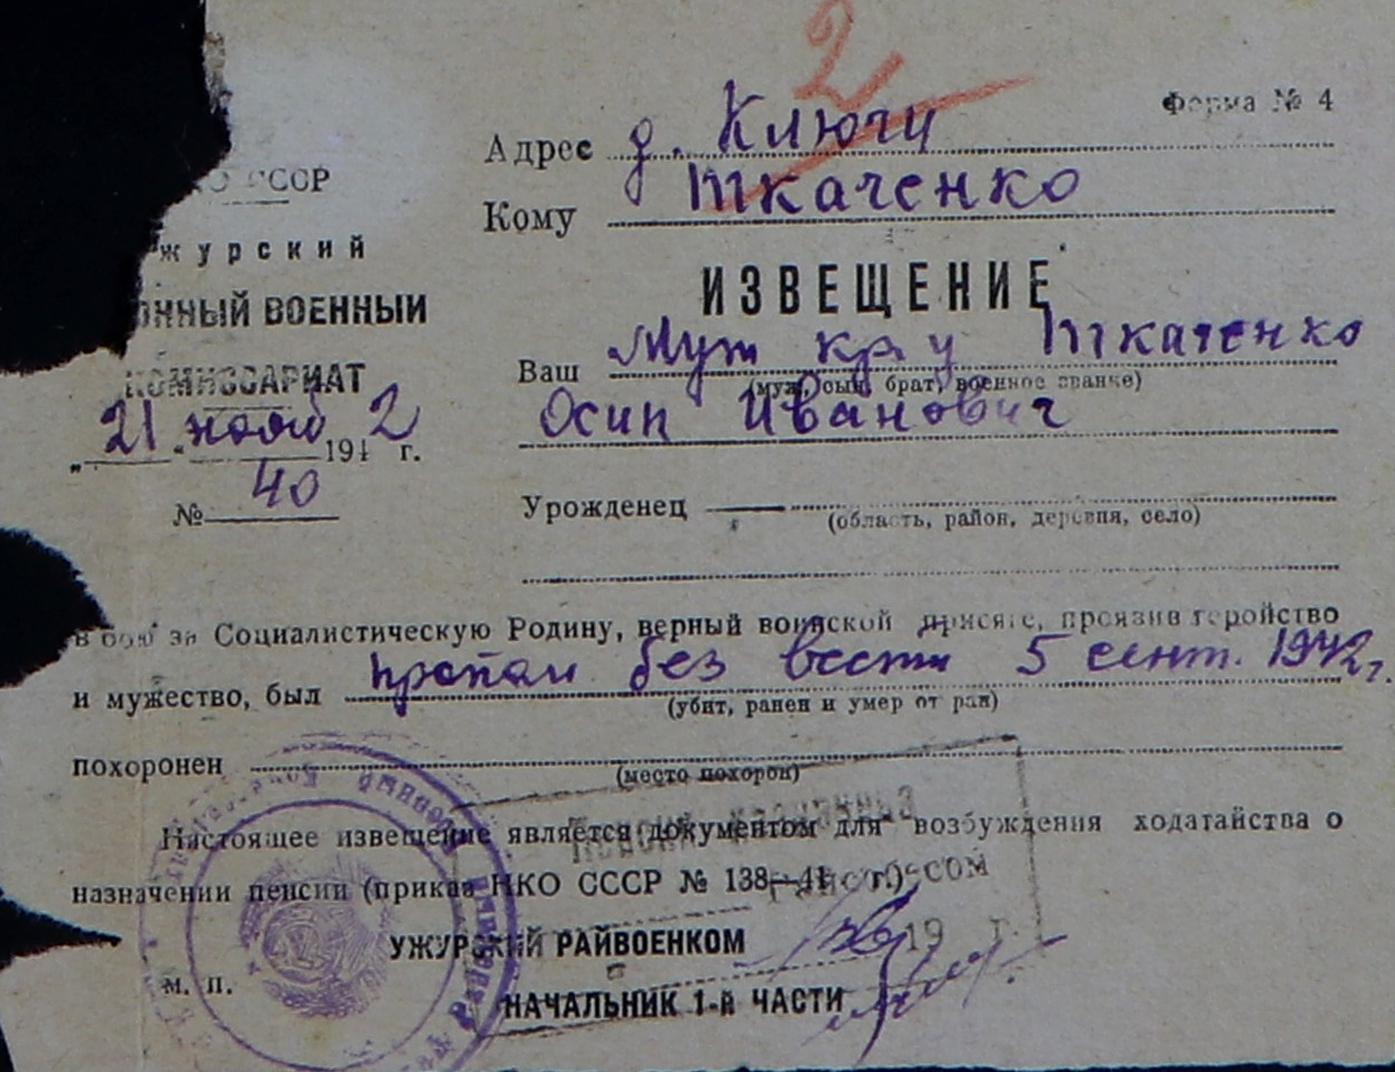 2
Форма № 4
Адрес д. Ключи
Кому Ткаченко
СССР
журский
онный военный
комиссариат
„21" нояб 1942 г.
№ 40
ИЗВЕЩЕНИЕ
Ваш Муж кр. у Ткаченко
(муж, сын, брат, военное звание)
Осип Иванович
Урожденец —
(область, район, деревня, село)
в бою за Социалистическую Родину, верный воинской присяге, проявив геройство
и мужество, был пропал без вести 5 сент. 1942 г.
(убит, ранен и умер от ран)
похоронен
(место похорон)
Настоящее извещение является документом для возбуждения ходатайства о
назначении пенсии (приказ НКО СССР № 138—41 г.).
УЖУРСКИЙ РАЙВОЕНКОМ
19 г.
м. п.
НАЧАЛЬНИК 1-й ЧАСТИ